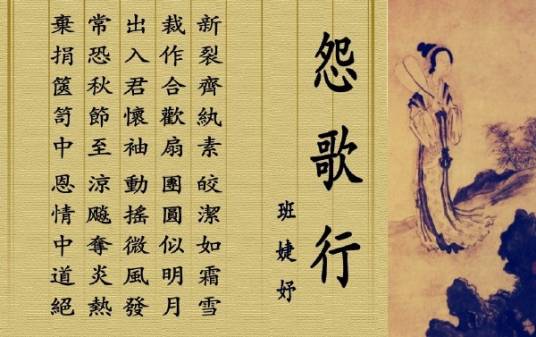 怨歌行
班婕妤
新裂齊紈素皎潔如霜雪
裁作合歡扇團圓似明月
出入君懷袖動搖微風發
常恐秋節至涼飈奪炎熱
棄捐篋笥中恩情中道絕